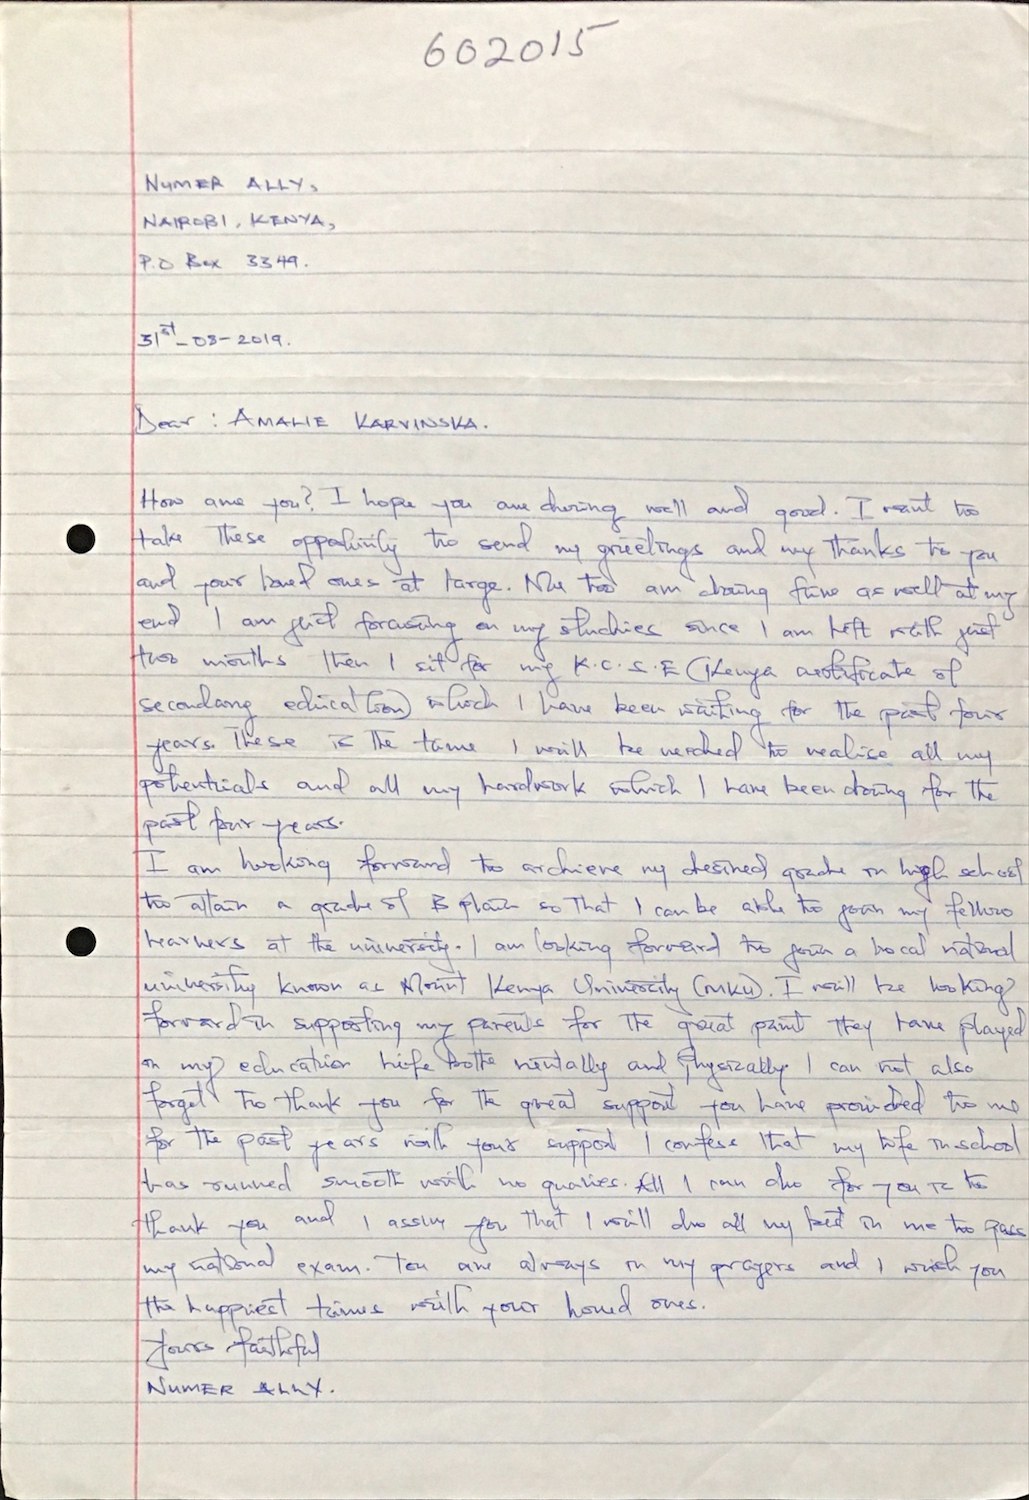 602015
NUMER ALLY,
NAIROBI, KENYA,
P.O Box 3349.
31st-08-2019.
Dear : AMALIE KARVINSKA.
How are you? I hope you are doing well and good. I want to
take these oppatunity to send my greetings and my thanks to you
and your loved ones at large. Me too am doing fine as well at my
end I am just forcusing on my studies since I am left with just
two months then I sit for my K.C.S.E (Kenya certificate of
secondary education) which I have been waiting for the past four
years. These is the time I will be needed to realise all my
potentials and all my hardwork which I have been doing for the
past four years.
I am looking forward to archieve my desired grade in high school
to attain a grade of B plain so that I can be able to join my fellow
learners at the university. I am looking forward to join a local national
university known as Mount Kenya University (MKU). I will be looking
forward in supporting my parents for the great paint they have played
in my education life both mentally and physically. I can not also
forget to thank you for the great support you have provided to me
for the past years with your support I confess that my life in school
has runned smooth with no quaries. All I can do for you is to
thank you and I assure you that I will do all my best in me to pass
my national exam. You are always in my prayers and I wish you
the happiest times with your loved ones.
Yours faithful
NUMER ALLY.